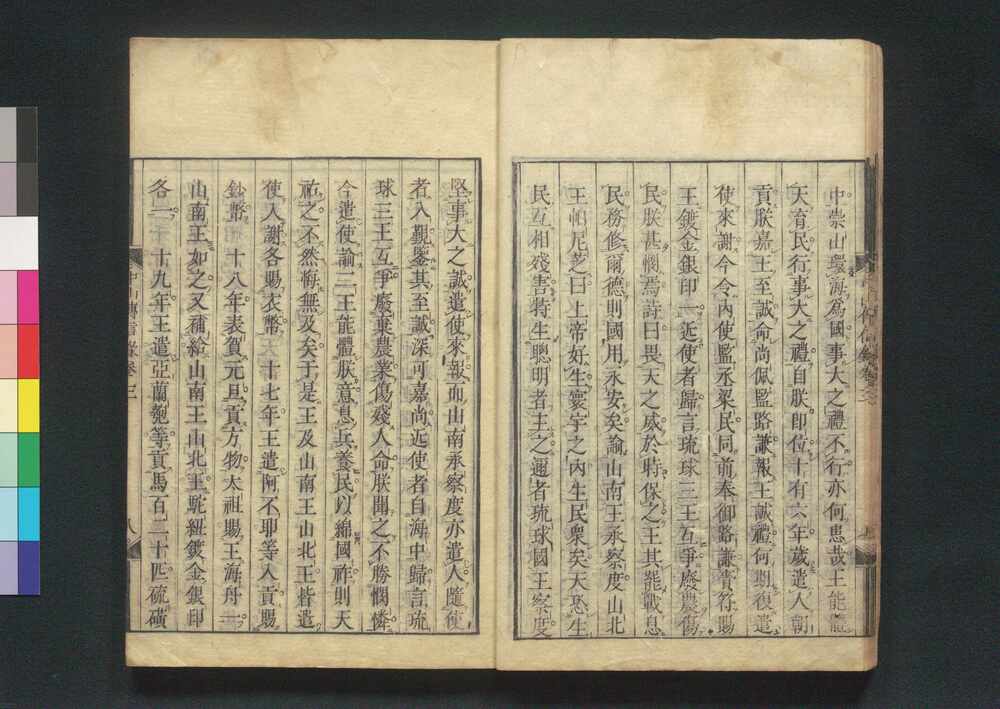 中崇山環海為國事大之禮不行亦何患哉王能體
天育民行事大之禮自朕即位十有六年歲遣人朝
貢朕嘉王至誠命尚佩監路謙報王誠禮何期復遣
使來謝今令內使監丞梁民同前奉御路謙齎符賜
王鍍金銀印一近使者歸言琉球三王互爭廢農傷
民朕甚憫焉詩曰畏天之威於時保之王其罷戰息
民務修爾德則國用永安矣諭山南王承察度山北
王帕尼芝曰上帝好生寰宇之內生民衆矣天恐生
民互相殘害特生聰明者王之邇者琉球國王察度
堅事大之誠遣使來報而山南承察度亦遣人隨使
者入覲鑒其至誠深可嘉尚近使者自海中歸言琉
球三王互爭廢棄農業傷殘人命朕聞之不勝憫憐
今遣使諭二王能體朕意息兵養民以綿國祚則天
祐之不然悔無及矣于是王及山南王山北王皆遣
使入謝各賜衣幣 十七年王遣阿不耶等入貢賜
鈔幣 十八年表賀元旦貢方物太祖賜王海舟一
山南王如之又補給山南王山北王駝紐鍍金銀印
各一 十九年王遣亞蘭匏等貢馬百二十匹硫磺
中山傳信錄卷三
八